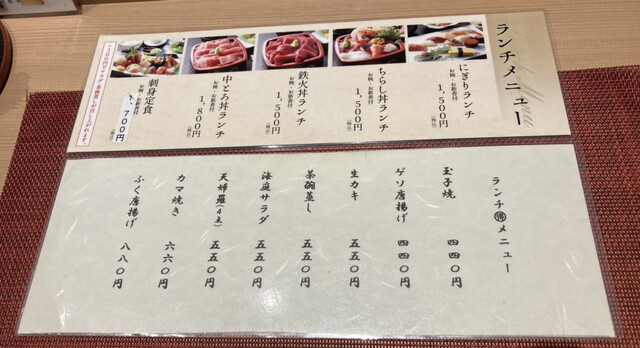 ランチメニュー
にぎりランチ
お椀・お新香付
1,500円
(税込)
ちらし丼ランチ
お椀・お新香付
1,500円
(税込)
鉄火丼ランチ
お椀・お新香付
1,500円
(税込)
中とろ丼ランチ
お椀・お新香付
1,800円
(税込)
刺身定食
お椀・お新香付
1,700円
(税込)
ランチ㊝メニュー
玉子焼
四四〇円
ゲソ唐揚げ
四四〇円
生カキ
五五〇円
茶碗蒸し
五五〇円
海庭サラダ
五五〇円
天婦羅(4点)
五五〇円
カマ焼き
六六〇円
ふく唐揚げ
八八〇円